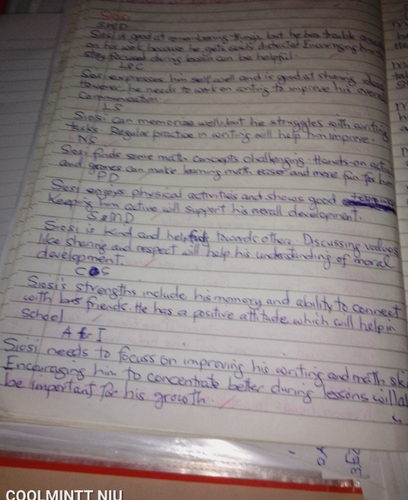 Siosi
SMED
Siosi is good at remembering things but he has trouble
on his work because he gets easily distracted Encouraging him
stay focused during lesson can be helpful.
LRC
Siosi expresses him self well and is good at sharing ideas
However he needs to work on writing to improve his overall
Communication
LS
Siosi can memorise well but he struggles with writing
tasks. Regular practice in writing will help him improve.
NS
Siosi finds some math concepts challenging. Hands-on
and games can make learning math easier and more fun for him
PD
Siosi enjoys physical activities and shows good
Keeping him active will support his overall development.
S&MD
Siosi is kind and helpful towards others. Discussing values
like sharing and respect will help his understanding of moral
development.
Siosi's strengths include his memory and ability to connect
with friends He has a positive attitude which will help in
school
A f I
Siosi needs to focus on improving his writing and math
Encouraging him to concentrate better during lessons will
be important for his growth.
COOLMINTT NIU